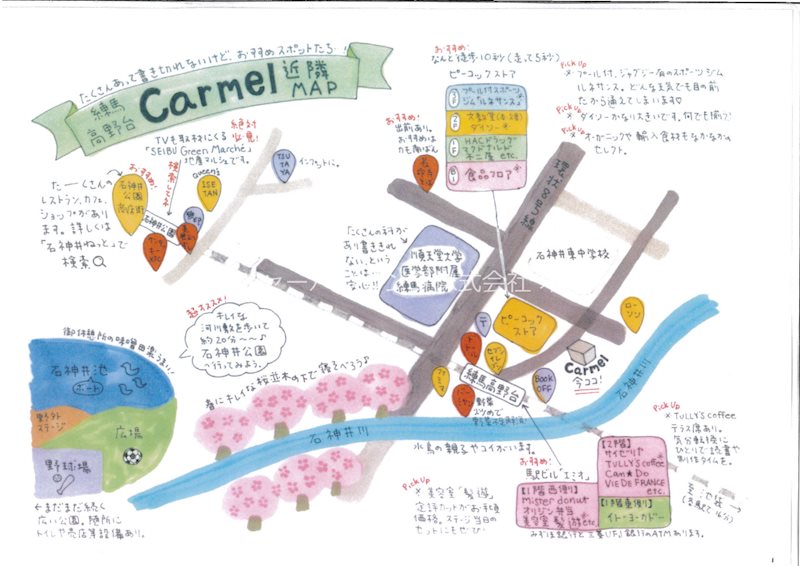 たくさんあって書き切れないけど、おすすめスポットたち…!
練馬
高野台
Carmel
近隣
MAP
おすすめ!
なんと徒歩10秒(走って5秒)
ピーコックストア
3F
プール付スポーツ
ジム「ルネサンス」
2F
ダイソー
1F
HACドラッグ
マクドナルド
不二屋 etc.
B1
食品フロア
Pick Up
* プール付、ジャグジー有のスポーツジム
ルネサンス。どんな天気でも目の前
だから通えてしまいます
Pick Up
* ダイソーかなり大きいです。何でも揃う!
Pick Up
* オーガニックや輸入食材もなかなか
セレクト。
絶対
必見!
TVも取材にくる
「SEIBU Green Marché」
地産マルシェです。
おすすめ!
石神井
公園
商店街
検索してネ
石神井公園
Queen's
ISE
TAN
TSU
TAYA
インプットに。
たーくさんの
レストラン、カフェ、
ショップがあり
ます。詳しくは
「石神井ねっと」で
検索
おすすめ!
出前あり。
おすすめは
カモ南ばん
環状8号線
たくさんの科が
あり書ききれ
ない、という
ことは…
安心!!
順天堂大学
医学部附属
練馬病院
石神井東中学校
ピーコック
ストア
ローソン
超オススメ!
キレイな
河川敷を歩いて
約20分〜♪
石神井公園
へ行ってみよう。
御休憩所の味噌田楽うまい!
石神井池
ボート
野外
ステージ
広場
野球場
←まだまだ続く
広い公園。随所に
トイレや売店等設備あり。
春にキレイな桜並木の下で寝そべろう♪
石神井川
石神井川
ファミマ
ドトール
セブンイレブン
練馬高野台
Book
OFF
Carmel
今ココ!
水鳥の親子やコイがいます。
おすすめ!
駅ビル「エミオ」
Pick Up
* 美容室「髪遊」
定評カットがお手頃
価格。ステージ当日の
セットにもぜひ
【1階西側】
Mister donut
オリジン弁当
美容室「髪遊」etc.
【2階】
サイゼリア
TULLY'S coffee
Can★Do
VIE DE FRANCE
etc.
【1階東側】
イトーヨーカドー
みずほ銀行と三菱UFJ銀行のATMあります。
Pick Up
* TULLY'S coffee
テラス席あり。
気分転換に
ひとりで読書や
制作タイムを。
至池袋→